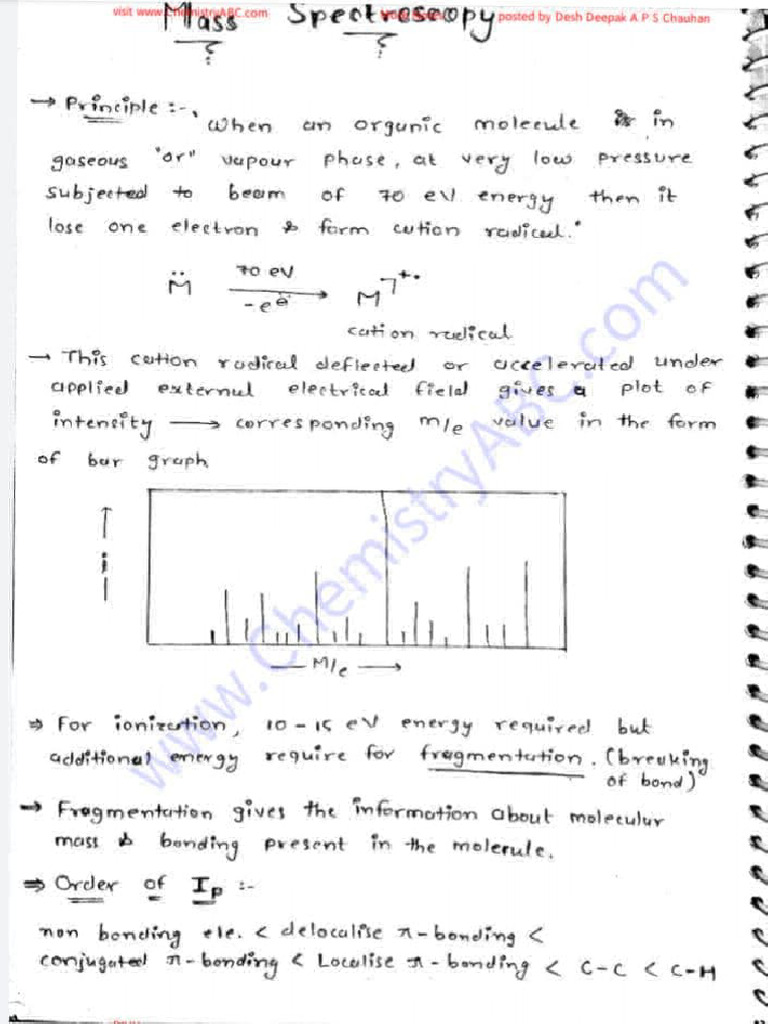 visit www.ChemistryABC.com
posted by Desh Deepak A P S Chauhan
Mass Spectroscopy
→ Principle :-,
When an organic molecule is in
gaseous "or" vapour phase, at very low pressure
subjected to beam of 70 eV energy then it
lose one electron & form cation radical."
M̈ 70 eV M⌉+•
-e e⁻
cation radical
→ This cation radical deflected or accelerated under
applied external electrical field gives a plot of
intensity → corresponding m/e value in the form
of bar graph
↑ i
— M/e →
⇒ For ionization, 10-15 eV energy required but
additional energy require for fragmentation. (breaking
of bond)
→ Fragmentation gives the information about molecular
mass & bonding present in the molecule.
⇒ Order of Ip :-
non bonding ele. < delocalise π-bonding <
conjugated π-bonding < Localise π-bonding < C-C < C-H
www.ChemistryABC.com